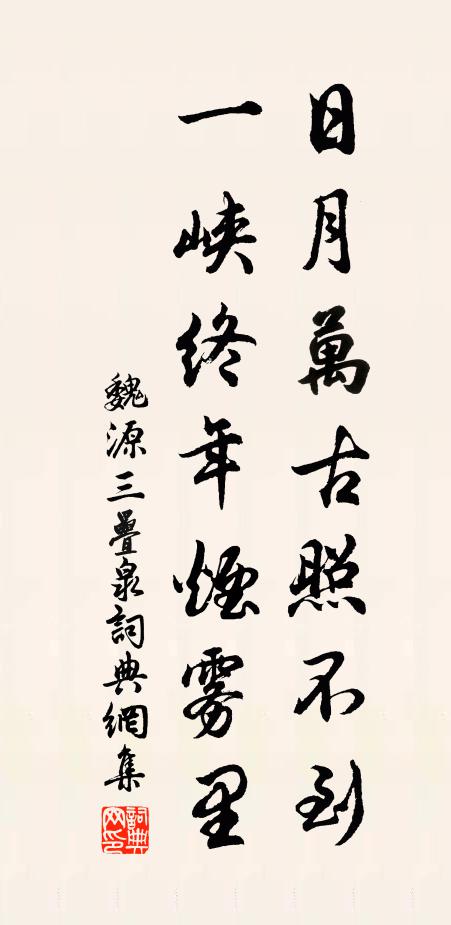 日月萬古照不到
一峽終年煙雾里
魏源三疊泉詞典網集
詞典網印